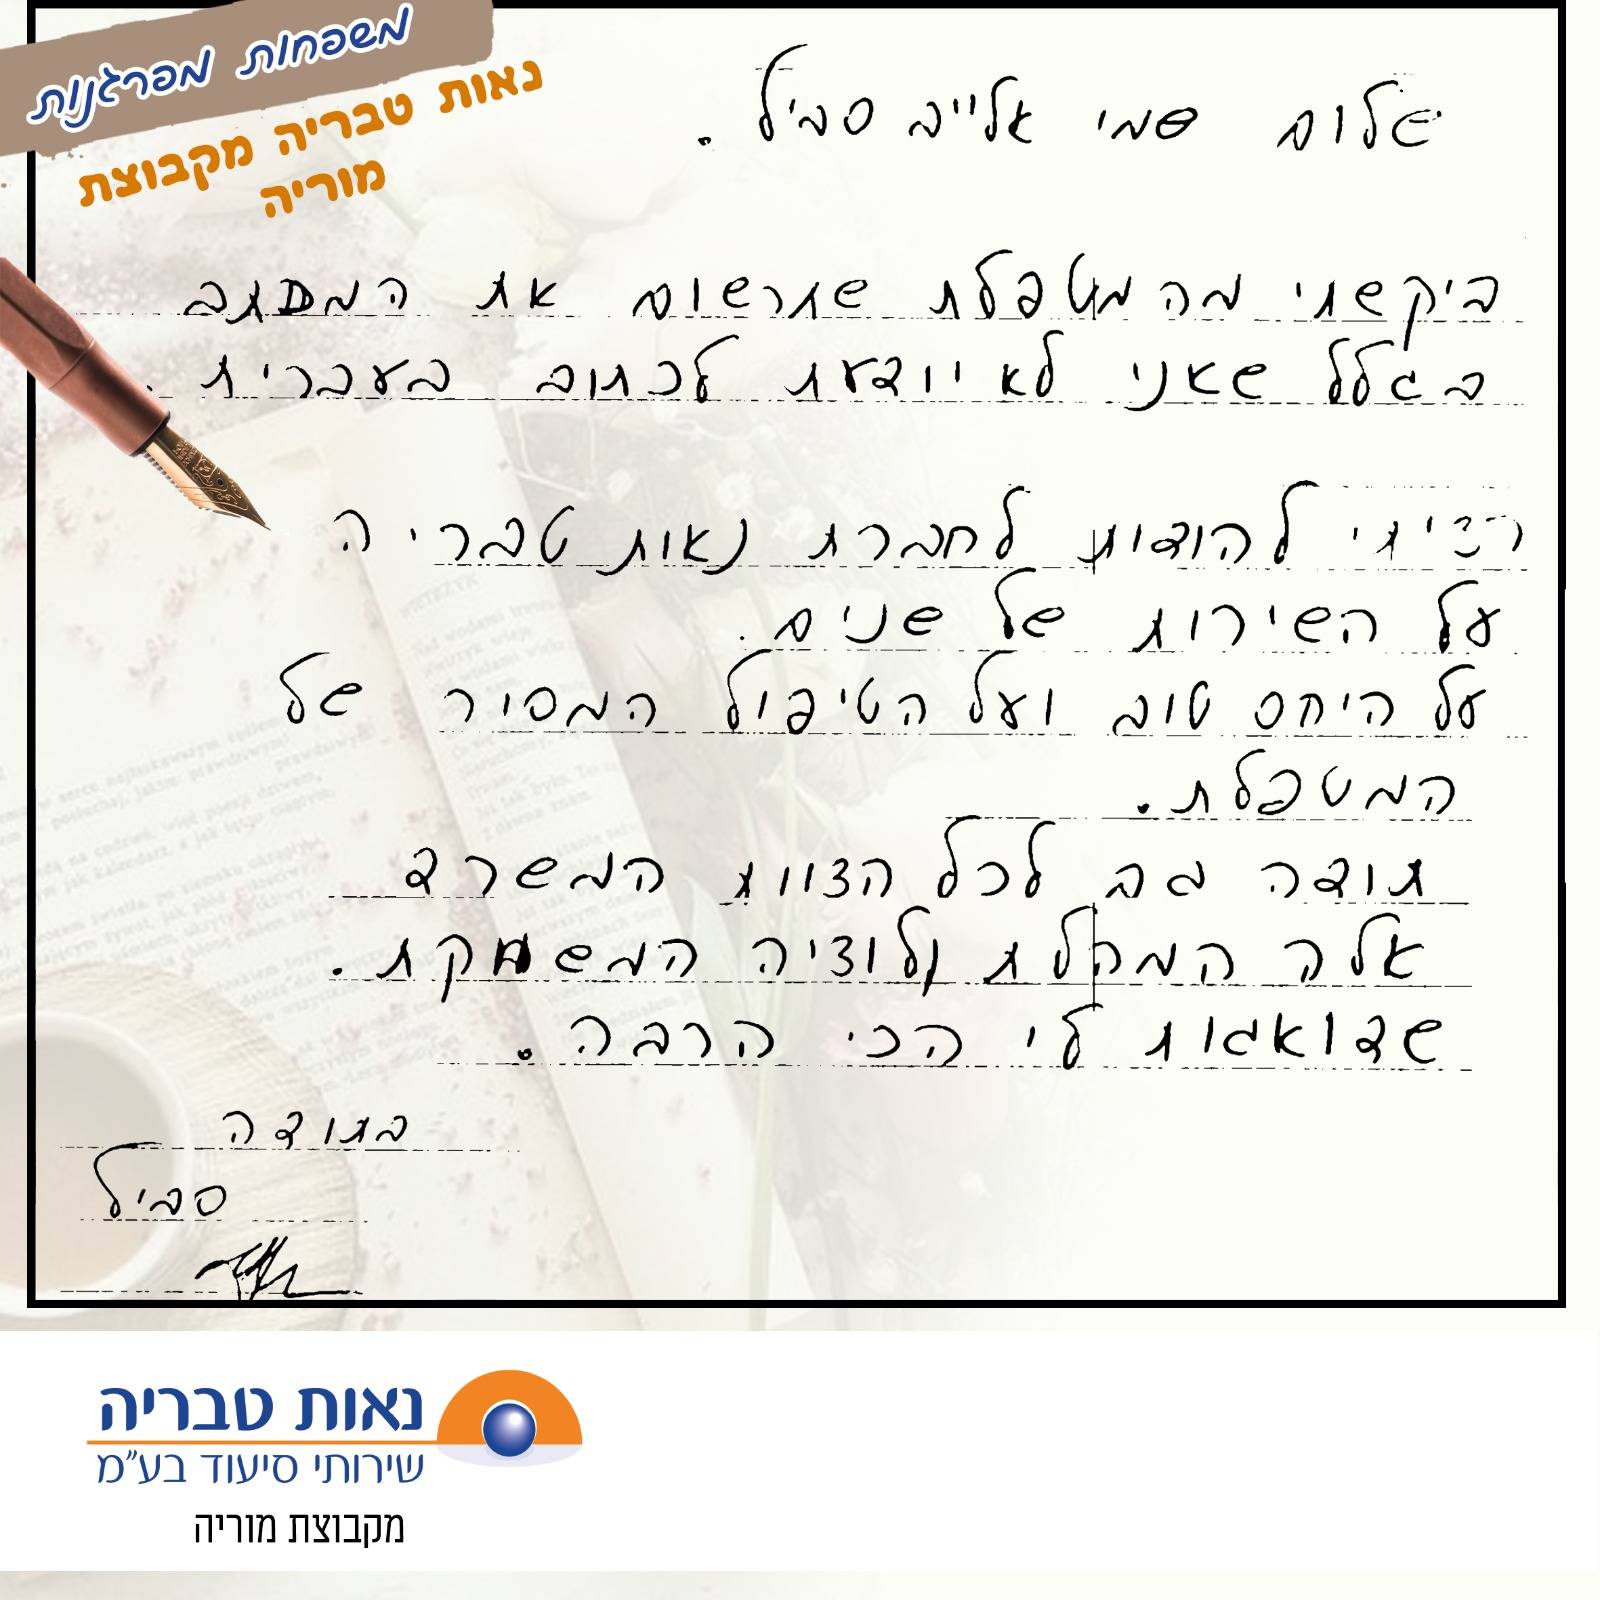 משפחות מפרגנות
נאות טבריה מקבוצת
מוריה
שלום שמי אלייב סביל.
ביקשתי מה מטפלת שתרשום את המכתב
בגלל שאני לא יודעת לכתוב בעברית.
רציתי להודות לחברת נאות טבריה
על השירות של שנים.
על היחס טוב ועל הטיפול המסיר של
המטפלת.
תודה גם לכל הצוות המשרד
אלה המהלת ולוציה המשחקת.
שדואגות לי הכי הרבה.
בתודה
סביל
נאות טבריה
שירותי סיעוד בע"מ
מקבוצת מוריה